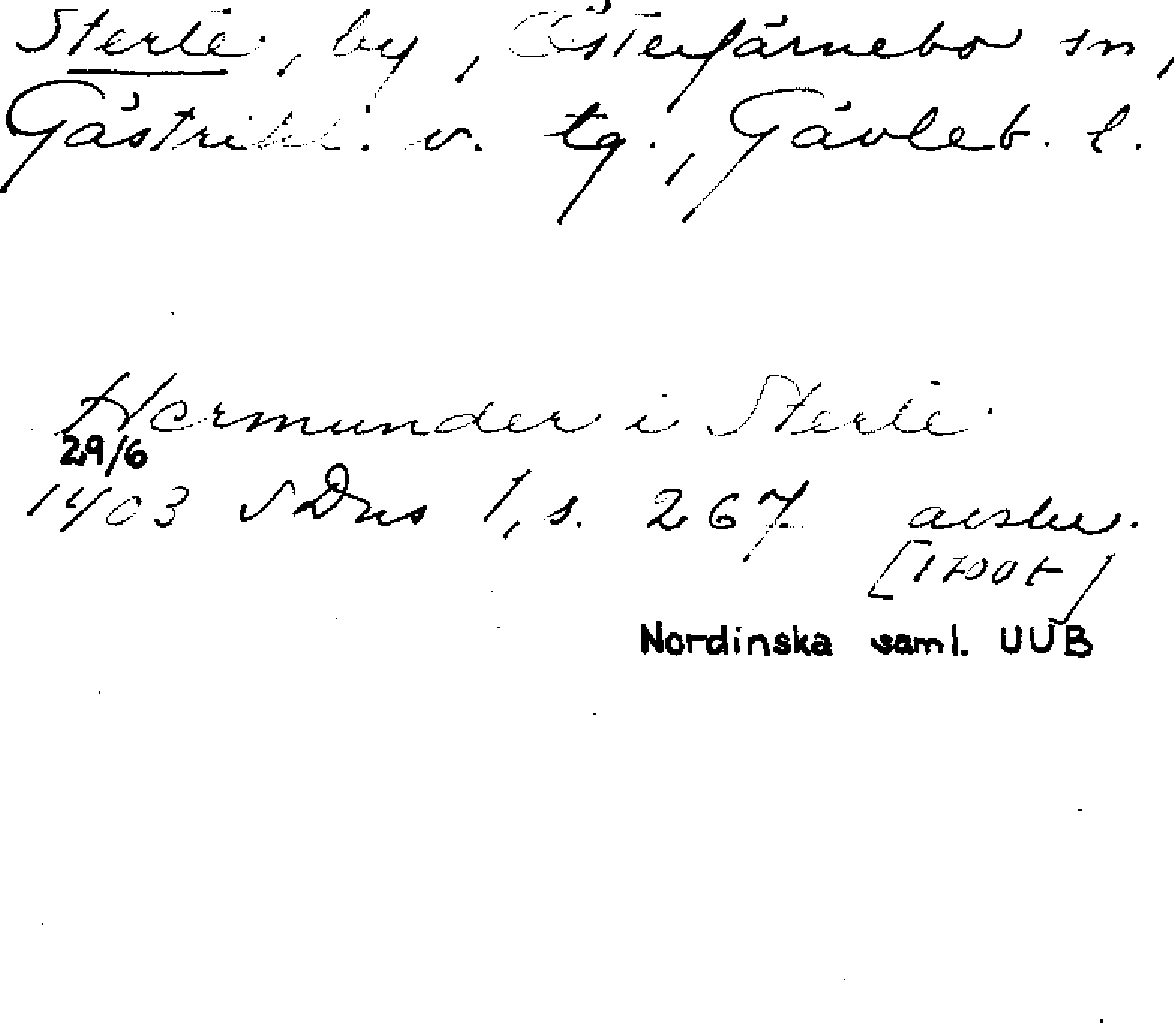 Sterte, by, Österfärnebo sn,
Gästrikl. v. tg., Gävleb. l.
Hermunder i Sterte
29/6
1403 SDns 1, s. 267 avskr.
[1700t]
Nordinska saml. UUB